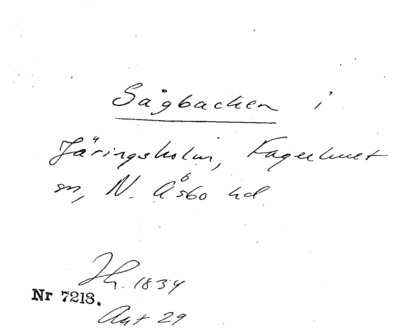 Sågbacken i
Järingsholm, Fagerhult
sn, N. Åsbo hd
Th. 1834
Nr 7218.
Ант 29